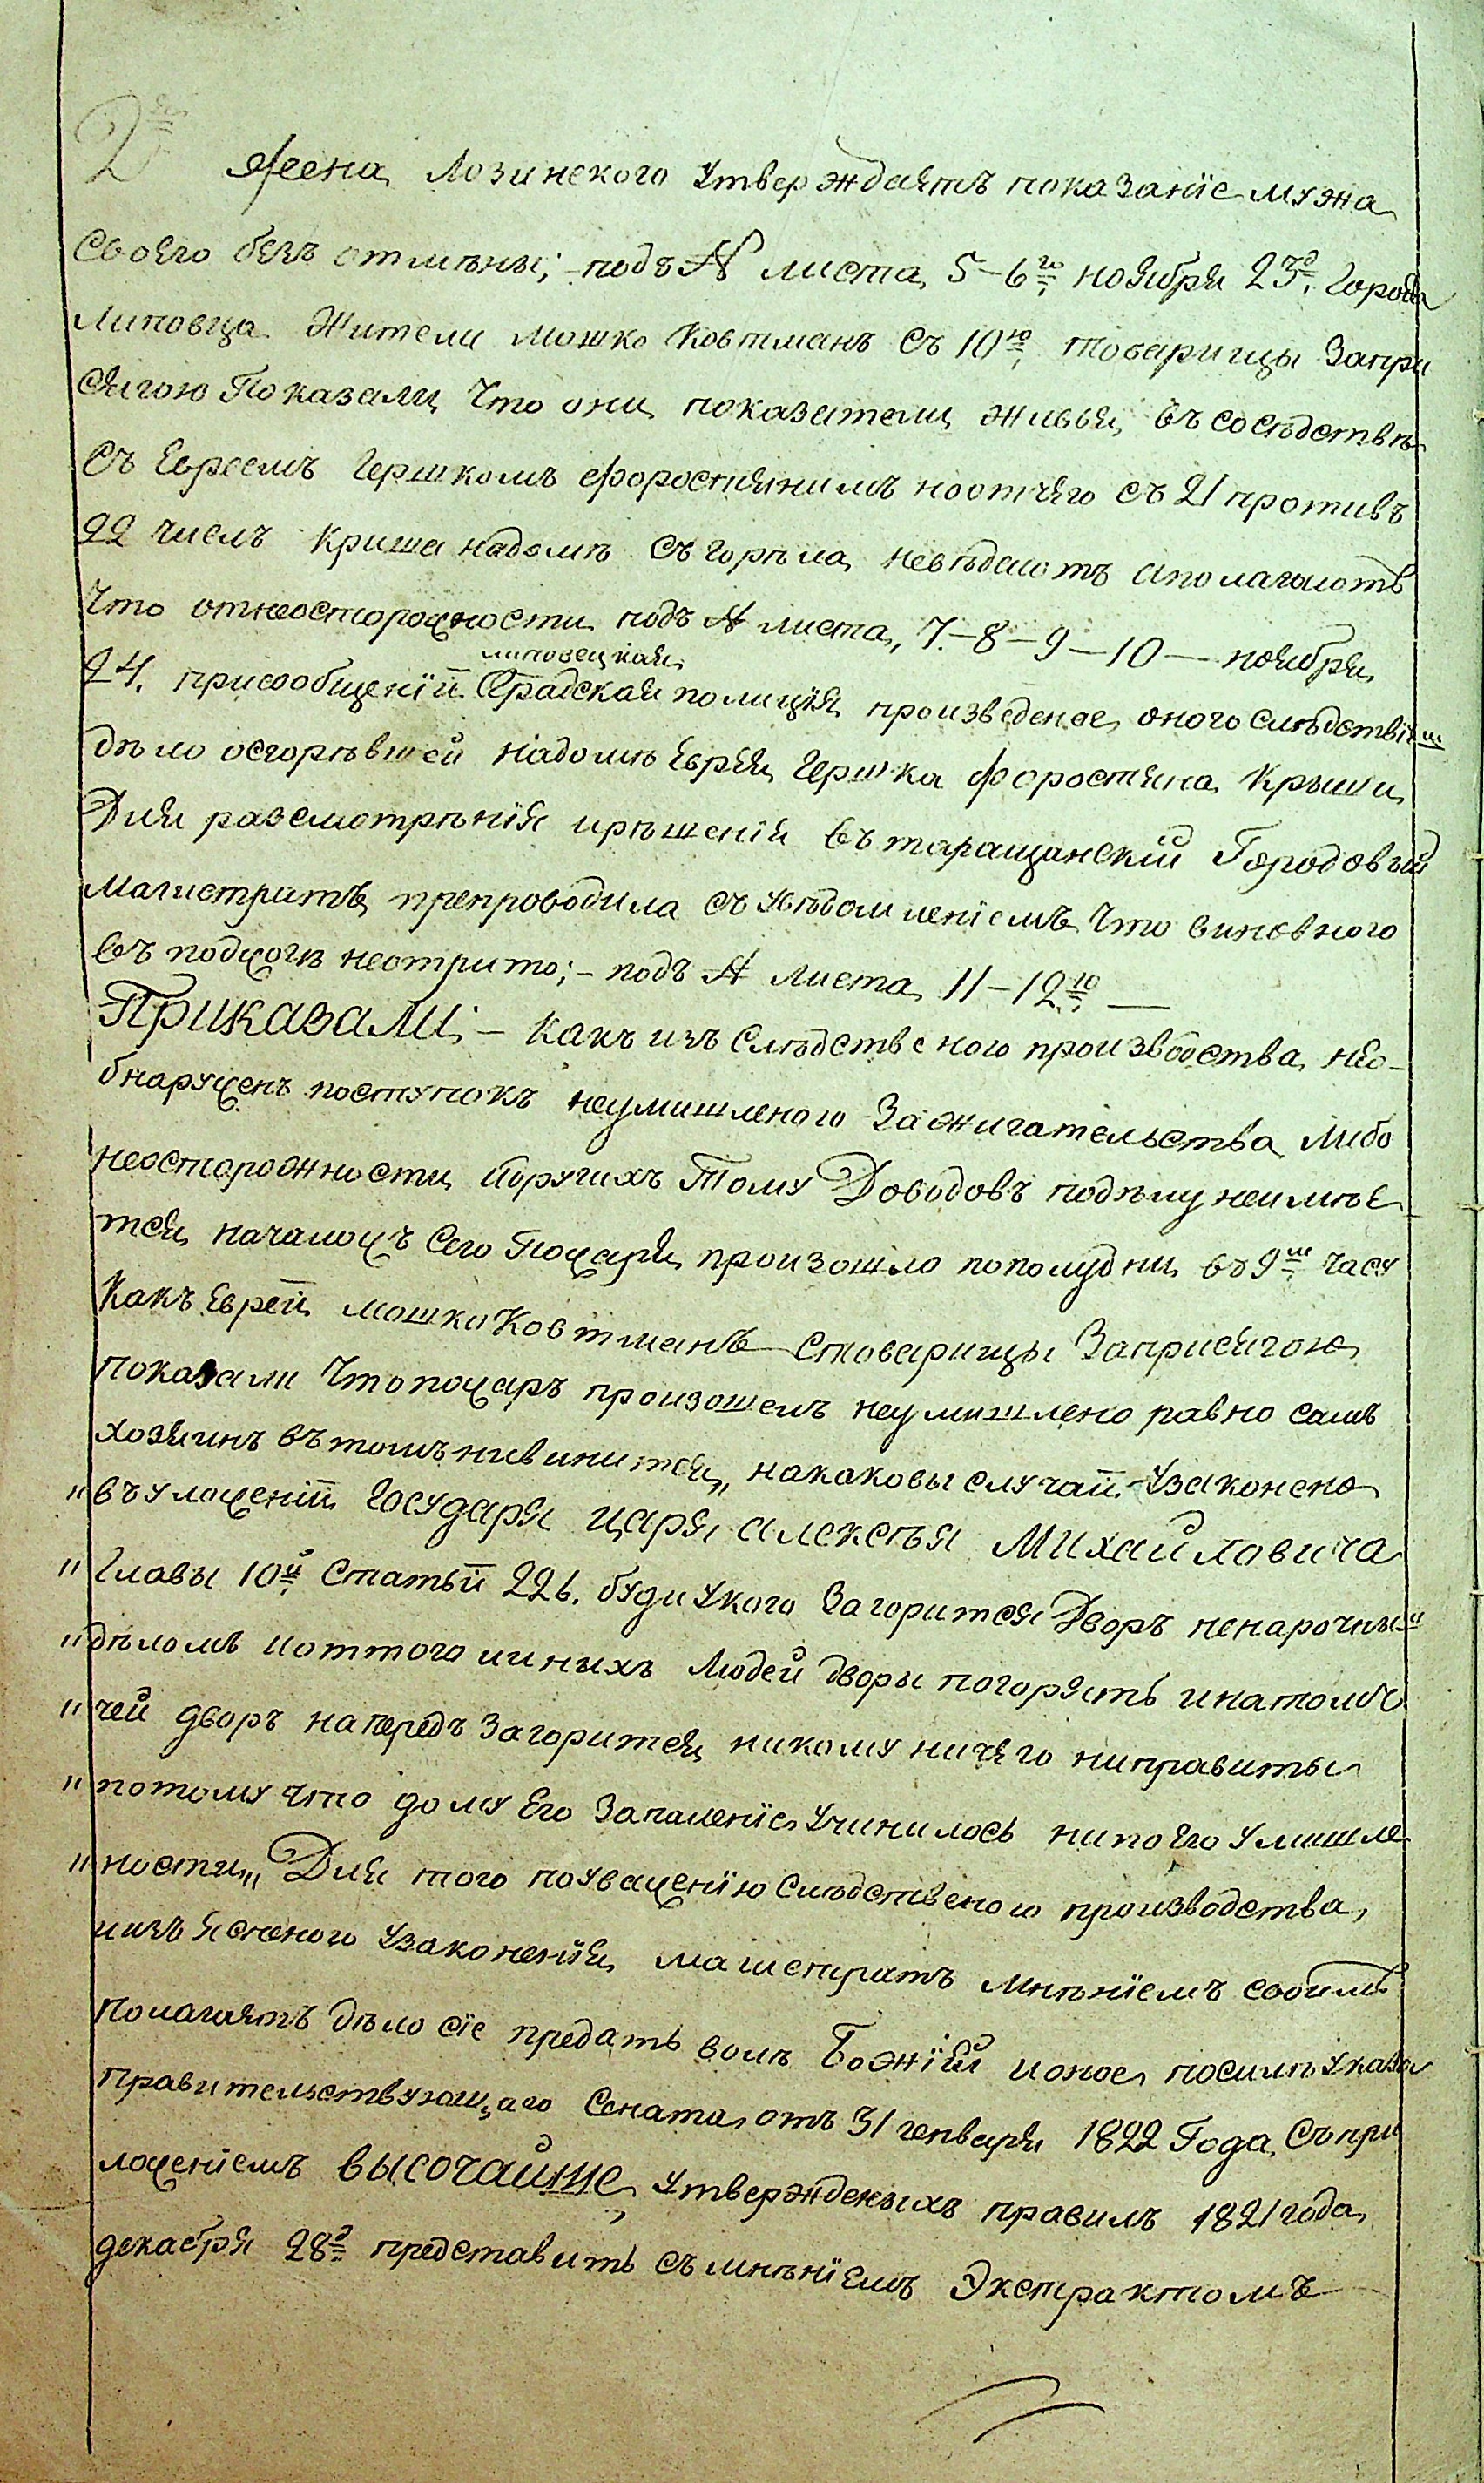 2я
Жена Лозинского утверждаятъ показаніе мужа
своего безъ отмѣны; подъ № листа 5-6го ноября 23го города
Липовца жители Мошко Ковтманъ съ 10ю товарищы запри
сягою показали что они показатели живья въ сосѣдствѣ
съ Евреемъ Гершкомъ Форостянимъ ноотчяго съ 21 противъ
22 числъ криша надомѣ съгорѣла невѣдаютъ аполагаютъ
что отнеосторожности подъ № листа, 7.-8-9-10- ноября
липовецкая
24. присообщеніи Градская полиція произведеное оного слѣдствіем
дѣло осгорѣвшей надомѣ Еврея Гершка Форостяна крыши
Для разсмотрѣнія ирѣшенія въ таращанскій Городовый
магистратъ препроводила съ увѣдомленіемъ что виновного
въ поджогѣ неотрито; - подъ № листа 11-12ю -
Приказали: - какъ изъ слѣдственого производства, нео-
бнаруженъ поступокъ неумишленого зажигательства либо
неосторожности идругихъ тому Доводовъ подѣлу неимѣе
тся, началожъ сего пожаря произошло пополудни въ 9м часу
какъ Еврей мошко Ковтманъ стоварищы заприсягою
показали что пожаръ произошелъ неумишлено равно самъ
хозяинъ вътомъ нивинится, накаковы случай узаконено
" въуложеніи Государя царя алексѣя Михайловича
" Главы 10й статьи 226. буди укого загорится Дворъ ненарочным
" дѣломъ иоттого ииныхъ людей дворы погорятъ инатомъ
" чей дворъ напередъ загорится никому ничяго ниправиты
" потому что дому Его запаленіе учинилось нипоЕго умишле
" ности„ Для того поуваженію слѣдственого производства,
иизъясненого узаконенія магистратъ мнѣніемъ своимъ
полагаятъ дѣло сіе предать волѣ Божіей ионое посилѣ указа
правительствующаго Сената отъ 31 генваря 1822 Года, съпри
ложеніемъ высочайше утвержденыхъ правилъ 1821 года,
декабря 28го представить съмнѣніемъ Экстрактомъ